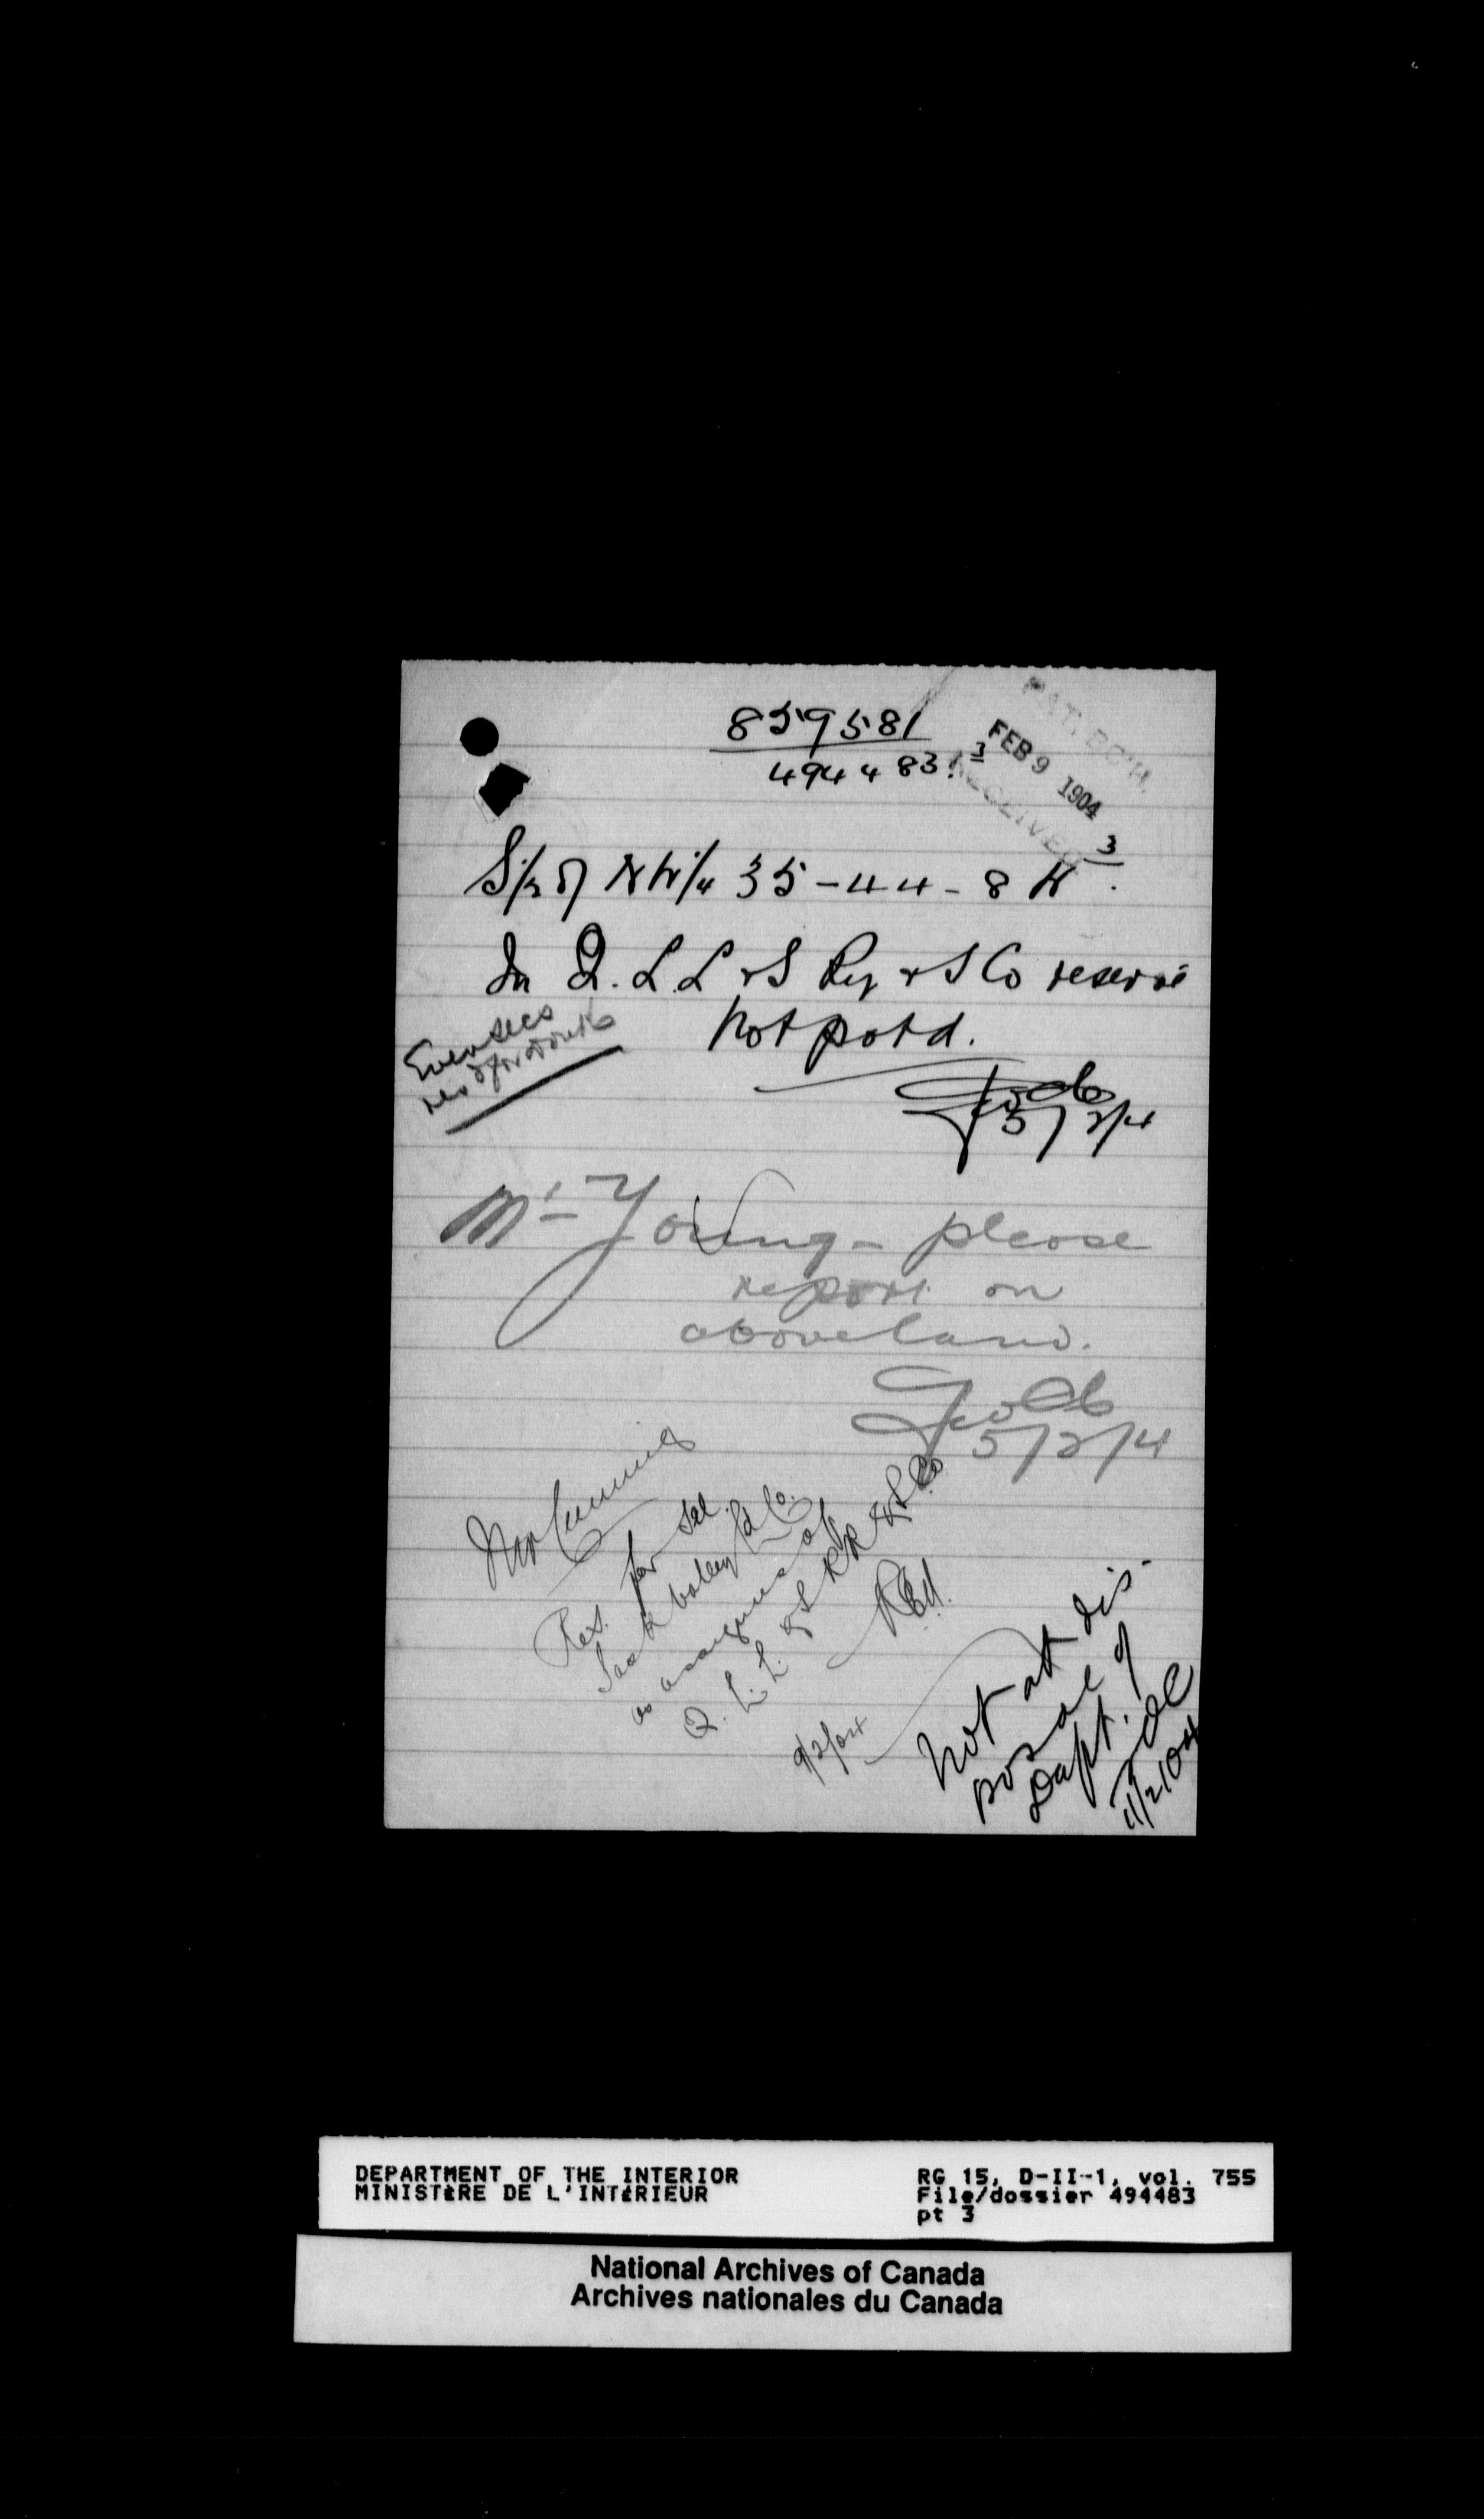 859581
494483.3
PAT. BCH.
FEB 9 1904
RECEIVED
S/½ of NW/4 35-44-8 W 3.
In Q.L.L & S Ry & S Co reserve
Not patd.
Even secs
5/2/4
Mr Young - please
report on
above land.
5/2/4
Mr Cummings
Res. for Sel.
Sask Valley Ld Co.
as assignees of
Q.L.L. & S RR & S Co
9/2/04
Not at dis-
posal of
Dept.
11/2/04
DEPARTMENT OF THE INTERIOR
MINISTÈRE DE L'INTÉRIEUR
RG 15, D-II-1, vol. 755
File/dossier 494483
pt 3
National Archives of Canada
Archives nationales du Canada